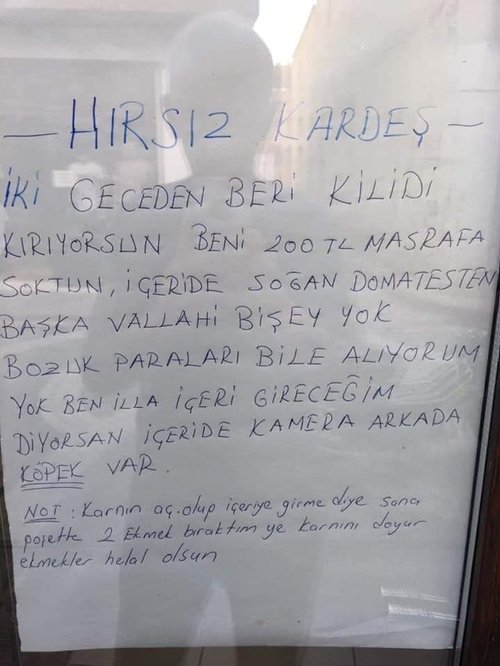 — HIRSIZ KARDEŞ —
İKİ GECEDEN BERİ KİLİDİ
KIRIYORSUN BENİ 200 TL MASRAFA
SOKTUN, İÇERİDE SOĞAN DOMATESTEN
BAŞKA VALLAHİ BİŞEY YOK
BOZUK PARALARI BİLE ALIYORUM
YOK BEN İLLA İÇERİ GİRECEĞİM
DİYORSAN İÇERİDE KAMERA ARKADA
KÖPEK VAR.
NOT : Karnın aç.olup içeriye girme diye sana
poşette 2 Ekmek bıraktım ye karnını doyur
ekmekler helal olsun